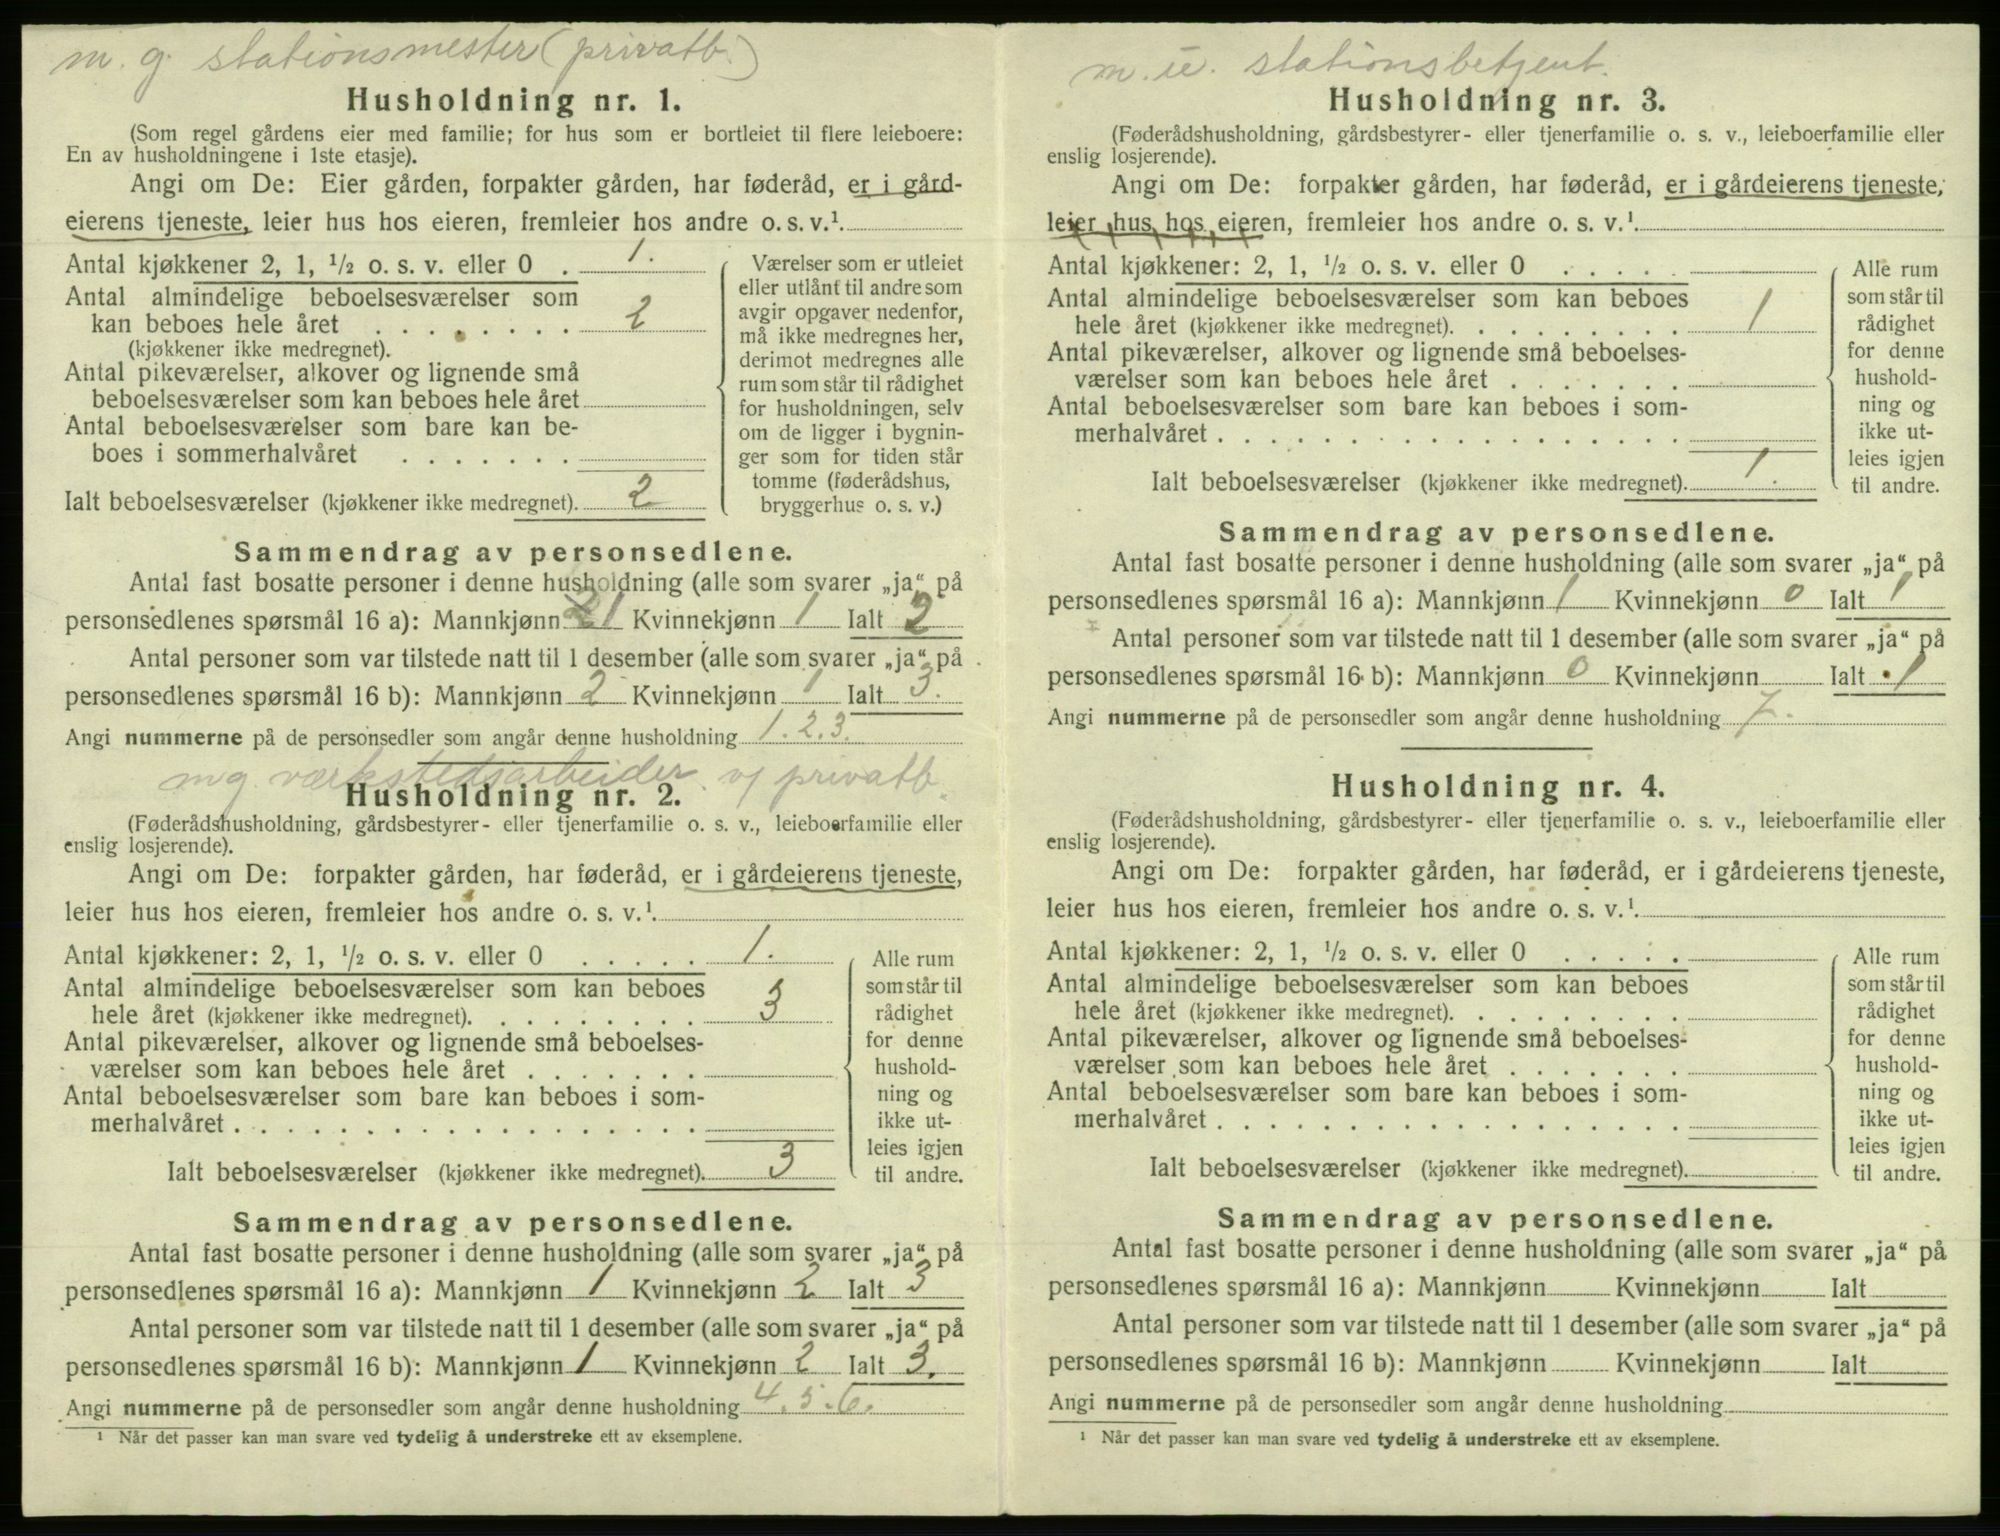 m. g. stationsmester (privatb.)
Husholdning nr. 1.
(Som regel gårdens eier med familie; for hus som er bortleiet til flere leieboere:
En av husholdningene i 1ste etasje).
Angi om De: Eier gården, forpakter gården, har føderåd, er i gård-
eierens tjeneste, leier hus hos eieren, fremleier hos andre o. s. v.¹
Antal kjøkkener 2, 1, ½ o. s. v. eller 0 . 1.
Antal almindelige beboelsesværelser som
kan beboes hele året . . . . . . . . 2
(kjøkkener ikke medregnet).
Antal pikeværelser, alkover og lignende små
beboelsesværelser som kan beboes hele året
Antal beboelsesværelser som bare kan be-
boes i sommerhalvåret . . . . . . .
Ialt beboelsesværelser (kjøkkener ikke medregnet). 2
Værelser som er utleiet
eller utlånt til andre som
avgir opgaver nedenfor,
må ikke medregnes her,
derimot medregnes alle
rum som står til rådighet
for husholdningen, selv
om de ligger i bygnin-
ger som for tiden står
tomme (føderådshus,
bryggerhus o. s. v.)
Sammendrag av personsedlene.
Antal fast bosatte personer i denne husholdning (alle som svarer „ja“ på
personsedlenes spørsmål 16 a): Mannkjønn 2 1 Kvinnekjønn 1 Ialt 2
Antal personer som var tilstede natt til 1 desember (alle som svarer „ja“ på
personsedlenes spørsmål 16 b): Mannkjønn 2 Kvinnekjønn 1 Ialt 3.
Angi nummerne på de personsedler som angår denne husholdning 1. 2. 3.
mg. værkstedsarbeider v/ privatb.
Husholdning nr. 2.
(Føderådshusholdning, gårdsbestyrer- eller tjenerfamilie o. s. v., leieboerfamilie eller
enslig losjerende).
Angi om De: forpakter gården, har føderåd, er i gårdeierens tjeneste,
leier hus hos eieren, fremleier hos andre o. s. v.¹
Antal kjøkkener: 2, 1, ½ o. s. v. eller 0 . . . . . 1.
Antal almindelige beboelsesværelser som kan beboes
hele året (kjøkkener ikke medregnet). . . . . . . . . 3
Antal pikeværelser, alkover og lignende små beboelses-
værelser som kan beboes hele året . . . . . . .
Antal beboelsesværelser som bare kan beboes i som-
merhalvåret . . . . . . . . . . . . . . . . . .
Ialt beboelsesværelser (kjøkkener ikke medregnet). 3
Alle rum
som står til
rådighet
for denne
hushold-
ning og
ikke ut-
leies igjen
til andre.
Sammendrag av personsedlene.
Antal fast bosatte personer i denne husholdning (alle som svarer „ja“ på
personsedlenes spørsmål 16 a): Mannkjønn 1 Kvinnekjønn 2 Ialt 3
Antal personer som var tilstede natt til 1 desember (alle som svarer „ja“ på
personsedlenes spørsmål 16 b): Mannkjønn 1 Kvinnekjønn 2 Ialt 3.
Angi nummerne på de personsedler som angår denne husholdning 4. 5. 6.
¹ Når det passer kan man svare ved tydelig å understreke ett av eksemplene.
m. u. stationsbetjent.
Husholdning nr. 3.
(Føderådshusholdning, gårdsbestyrer- eller tjenerfamilie o. s. v., leieboerfamilie eller
enslig losjerende).
Angi om De: forpakter gården, har føderåd, er i gårdeierens tjeneste,
leier hus hos eieren, fremleier hos andre o. s. v.¹
Antal kjøkkener: 2, 1, ½ o. s. v. eller 0 . . . . .
Antal almindelige beboelsesværelser som kan beboes
hele året (kjøkkener ikke medregnet). . . . . . . . . 1
Antal pikeværelser, alkover og lignende små beboelses-
værelser som kan beboes hele året . . . . . . .
Antal beboelsesværelser som bare kan beboes i som-
merhalvåret . . . . . . . . . . . . . . . . . .
Ialt beboelsesværelser (kjøkkener ikke medregnet). 1.
Alle rum
som står til
rådighet
for denne
hushold-
ning og
ikke ut-
leies igjen
til andre.
Sammendrag av personsedlene.
Antal fast bosatte personer i denne husholdning (alle som svarer „ja“ på
personsedlenes spørsmål 16 a): Mannkjønn 1 Kvinnekjønn 0 Ialt 1
Antal personer som var tilstede natt til 1 desember (alle som svarer „ja“ på
personsedlenes spørsmål 16 b): Mannkjønn 0 Kvinnekjønn Ialt 1
Angi nummerne på de personsedler som angår denne husholdning 7.
Husholdning nr. 4.
(Føderådshusholdning, gårdsbestyrer- eller tjenerfamilie o. s. v., leieboerfamilie eller
enslig losjerende).
Angi om De: forpakter gården, har føderåd, er i gårdeierens tjeneste,
leier hus hos eieren, fremleier hos andre o. s. v.¹
Antal kjøkkener: 2, 1, ½ o. s. v. eller 0 . . . . .
Antal almindelige beboelsesværelser som kan beboes
hele året (kjøkkener ikke medregnet). . . . . . . . .
Antal pikeværelser, alkover og lignende små beboelses-
værelser som kan beboes hele året . . . . . . .
Antal beboelsesværelser som bare kan beboes i som-
merhalvåret . . . . . . . . . . . . . . . . . .
Ialt beboelsesværelser (kjøkkener ikke medregnet).
Alle rum
som står til
rådighet
for denne
hushold-
ning og
ikke ut-
leies igjen
til andre.
Sammendrag av personsedlene.
Antal fast bosatte personer i denne husholdning (alle som svarer „ja“ på
personsedlenes spørsmål 16 a): Mannkjønn Kvinnekjønn Ialt
Antal personer som var tilstede natt til 1 desember (alle som svarer „ja“ på
personsedlenes spørsmål 16 b): Mannkjønn Kvinnekjønn Ialt
Angi nummerne på de personsedler som angår denne husholdning
¹ Når det passer kan man svare ved tydelig å understreke ett av eksemplene.